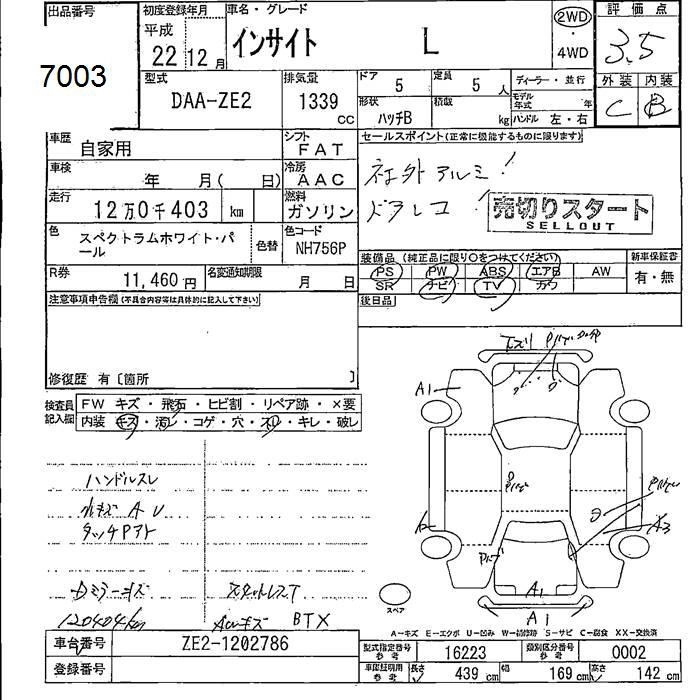 出品番号
7003
初度登録年月
平成
22年12月
車名・グレード
インサイト L
2WD
・
4WD
評価点
3.5
外装 内装
C B
型式
DAA-ZE2
排気量
1339
cc
ドア 5
定員 5人
形状 ハッチB
積載 kg
ディーラー・並行
モデル年式 年
ハンドル 左・右
車歴 自家用
シフト FAT
車検 年 月( 日)
冷房 AAC
走行 12万0千403 km
燃料 ガソリン
色 スペクトラムホワイト・パール
色替
色コード NH756P
R券 11,460円
名変通知期限 月 日
セールスポイント(正常に機能するものに限ります)
社外アルミ!
ドラレコ
売切りスタート
SELLOUT
装備品 (純正品に限り○をつけてください)
PS PW ABS エアB AW
SR ナビ TV カワ
新車保証書
有・無
後日品
注意事項申告欄(不具合内容等は具体的に記入して下さい)
修復歴 有〔箇所 〕
検査員記入欄
FW キズ・飛石・ヒビ割・リペア跡・×要
内装 キズ・汚レ・コゲ・穴・スレ・キレ・破レ
ハンドルスレ
小キズ A U
タッチPアト
Dミラーキズ
120404km
スタットレスT
AWキズ BTX
A1
A3
A1
A1
スペア
A-キズ E-エクボ U-凹み W-補修跡 S-サビ C-腐食 XX-交換済
車台番号 ZE2-1202786
登録番号
型式指定番号 参考 16223
類別区分番号 参考 0002
車庫証明用 参考 長さ 439 cm 幅 169 cm 高さ 142 cm